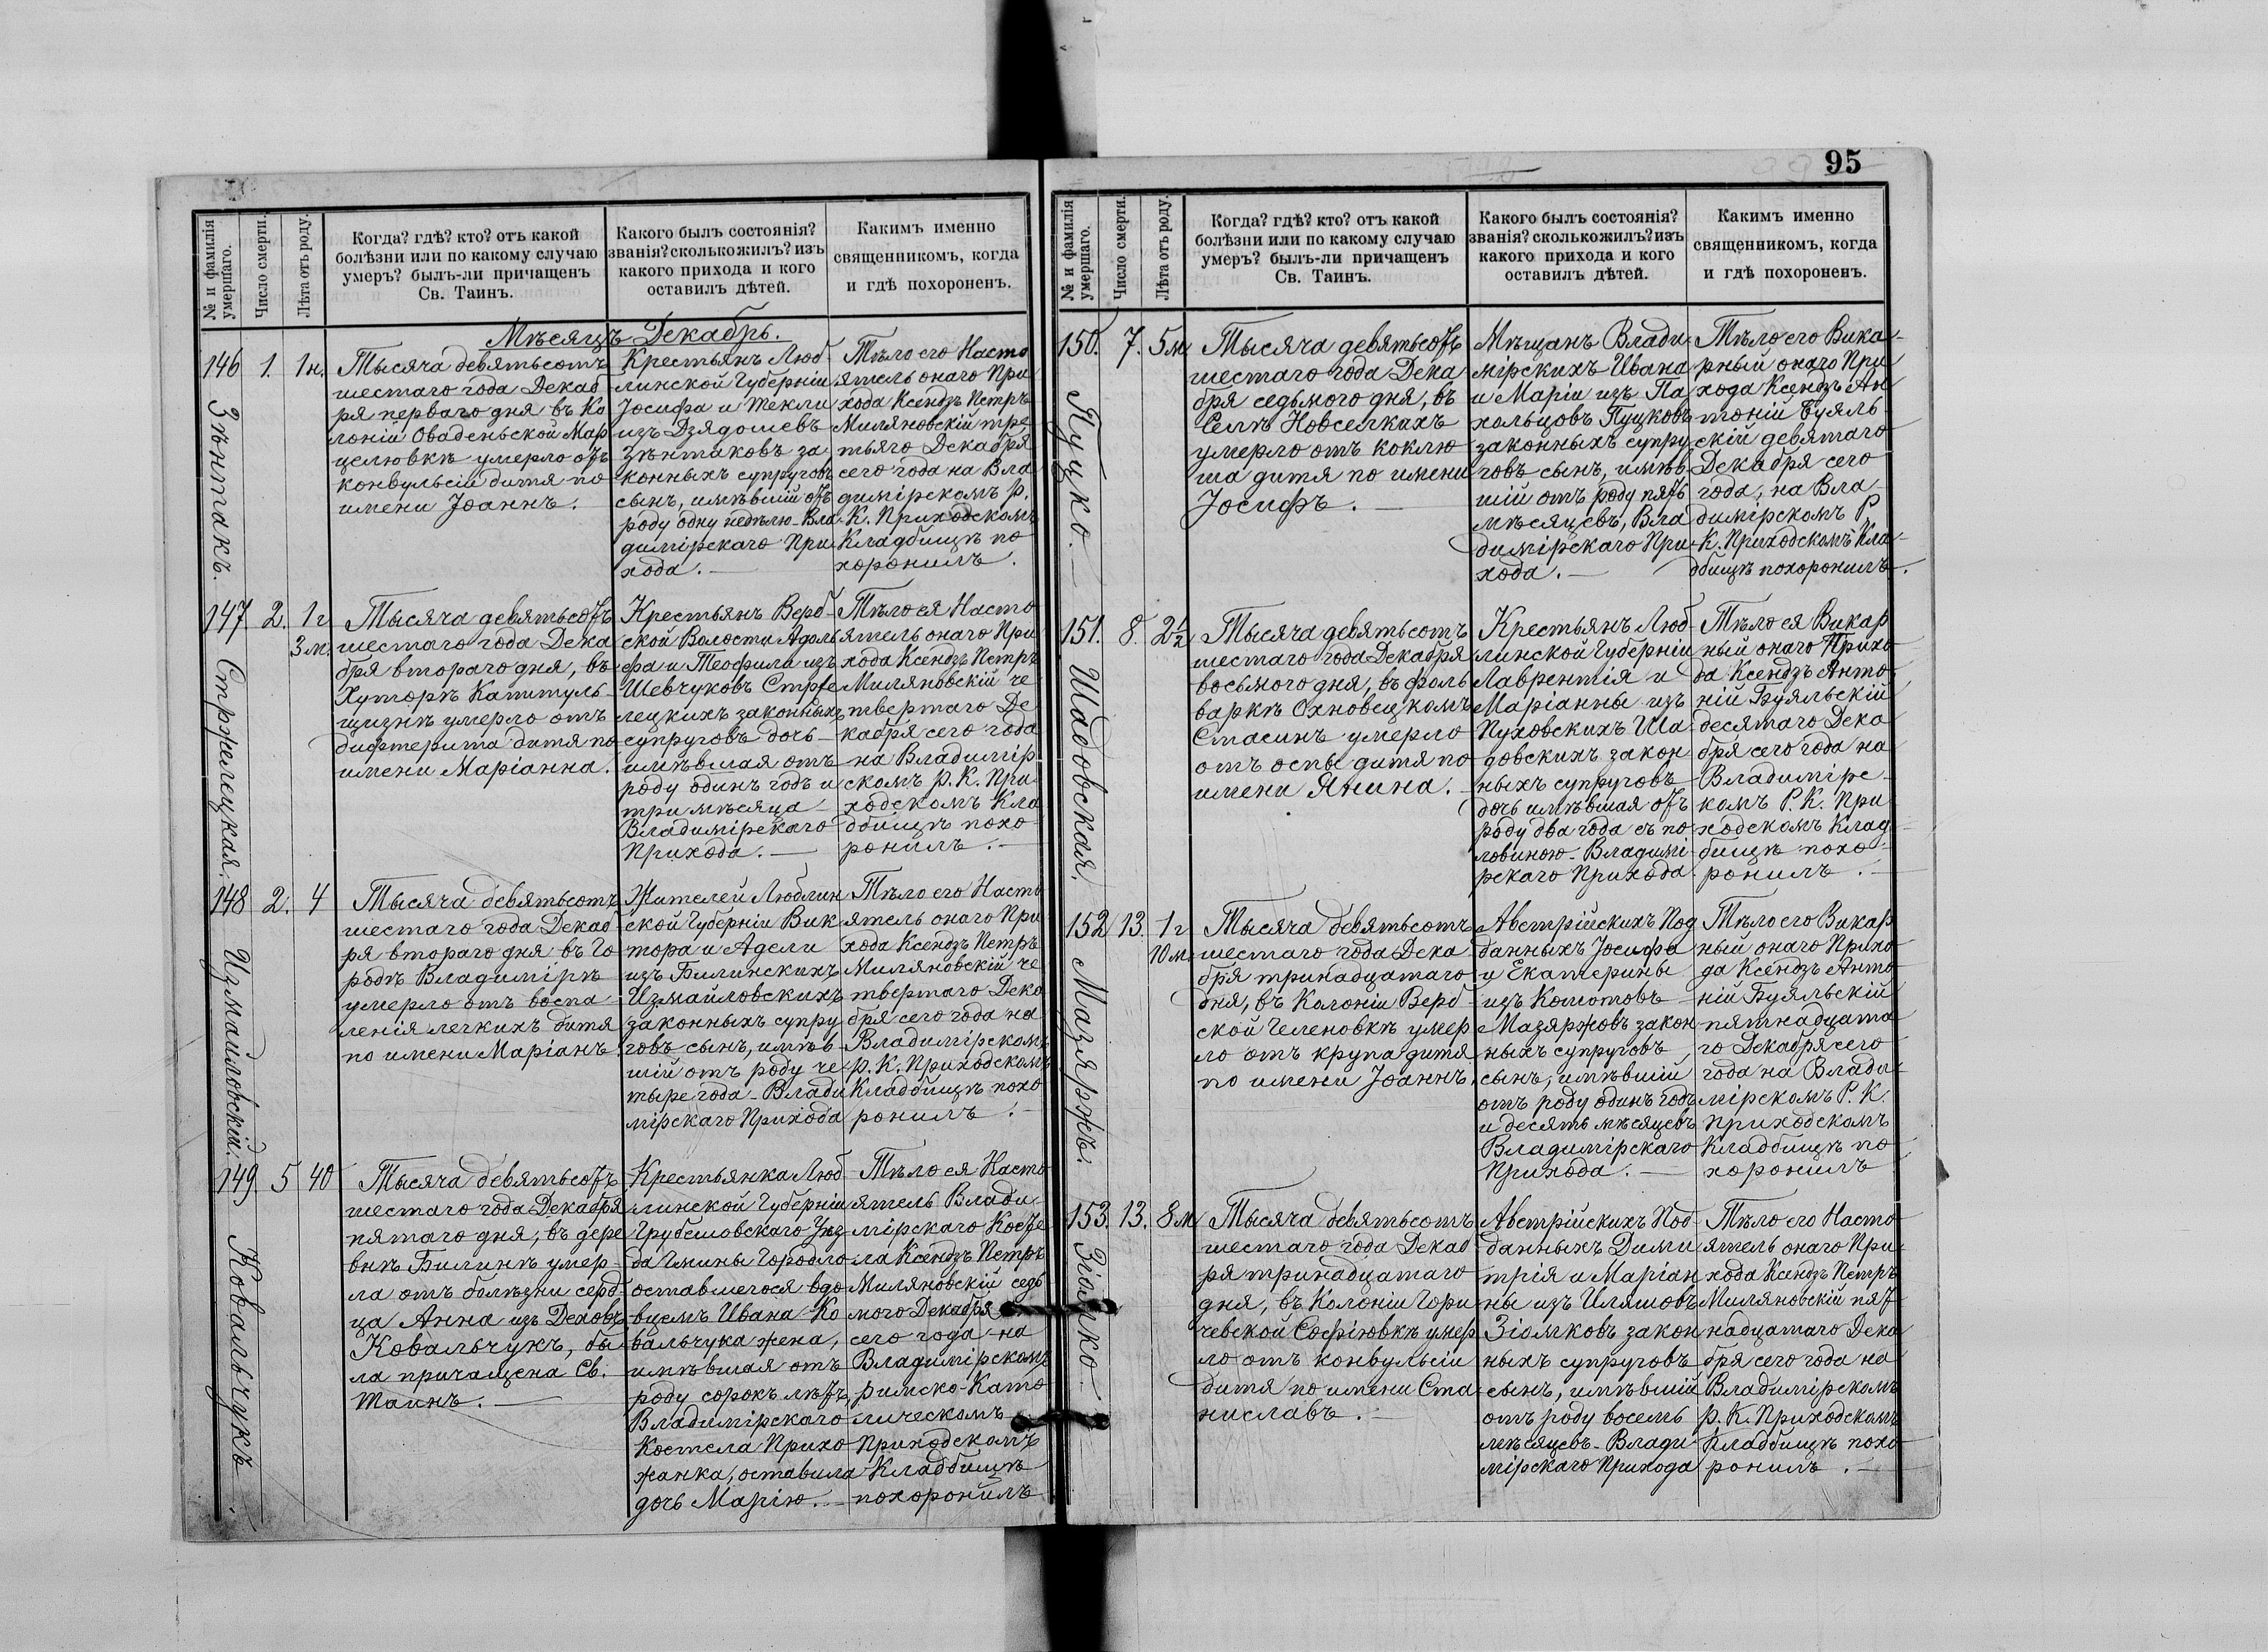 95
№ и фамилія
умершаго.
Число смерти.
Лѣта отъ роду.
Когда? гдѣ? кто? отъ какой
болѣзни или по какому случаю
умеръ? былъ-ли причащенъ
Св. Таинъ.
Какого былъ состоянія?
званія? сколько жилъ? изъ
какого прихода и кого
оставилъ дѣтей.
Каким именно
священникомъ, когда
и гдѣ похороненъ.
Мѣсяцъ Декабрь.
146
Зѣнтакъ.
1.
1н.
Тысяча девятьсотъ
шестаго года Декаб
ря перваго дня въ Ко
лоніи Оваденьской Мар
целювкѣ умерло отъ
конвульсіи дитя по
имени Іоаннъ.
Крестьянъ Люб-
линской Губерніи
Іосифа и Текли
изъ Дзядошевъ
Зѣнтаковъ за
конныхъ супруговъ
сынъ, имѣвшій отъ
роду одну недѣлю - Вла
димірскаго При
хода. —
Тѣло его Насто
ятель онаго При
хода Ксендзъ Петръ
Миляновскій тре
тьяго Декабря
сего года на Вла
димірскомъ р.
К. Приходскомъ
Кладбищѣ по
хоронилъ.
147.
Стржелецкая.
2.
1г
3м.
Тысяча девятьсотъ
шестаго года Дека
бря втораго дня, въ
Хуторѣ Капитуль-
щизнѣ умерло отъ
дифтерита дитя по
имени Маріанна.
Крестьянъ Верб-
ской Волости Адоль
фа и Теофили изъ
Шевчуковъ Стрже
лецкихъ законныхъ
супруговъ дочь -
имѣвшая отъ
роду одинъ годъ и
три мѣсяца -
Владимірскаго
Прихода. —
Тѣло ея Насто
ятель онаго При
хода Ксендзъ Петръ
Миляновскій че
твертаго Де
кабря сего года
на Владимір
скомъ р. К. При
ходскомъ Кла
дбищѣ похо
ронилъ. —
148
Измайловскій.
2.
4
Тысяча девятьсотъ
шестаго года Декаб-
ря втораго дня въ Го
родѣ Владимірѣ
умерло отъ воспа
ленія легкихъ дитя
по имени Маріанъ.
Жителей Люблин
ской Губерніи Вик
тора и Адели
изъ Билинскихъ
Измайловскихъ
законныхъ супру
говъ сынъ, имѣв-
шій отъ роду че
тыре года - Влади
мірскаго Прихода
Тѣло его Насто
ятель онаго При
хода Ксендзъ Петръ
Миляновскій че
твертаго Дека
бря сего года на
Владимірскомъ
р. К. Приходскомъ
Кладбищѣ похо
ронилъ. —
149.
Ковальчукъ.
5
40
Тысяча девятьсотъ
шестаго года Декабря
пятаго дня, въ дере
внѣ Билинѣ умер-
ла отъ болѣзни серд
ца Анна изъ Деховъ
Ковальчукъ, бы
ла причащена Св.
Таинъ. —
Крестьянка Люб
линской Губерніи
Грубешовскаго Уѣз
да Гмины Городло
оставшегося вдо
вцемъ Ивана Ко
вальчука жена,
имѣвшая отъ
роду сорокъ лѣтъ,
Владимірскаго
Костела Прихо
жанка, оставила
дочь Марію. —
Тѣло ея Насто
ятель Влади
мірскаго Косте
ла Ксендзъ Петръ
Миляновскій седь
мого Декабря
сего года на
Владимірскомъ
римско-Като
лическомъ
Приходскомъ
Кладбищѣ
похоронилъ
№ и фамилія
умершаго.
Число смерти.
Лѣта отъ роду.
Когда? гдѣ? кто? отъ какой
болѣзни или по какому случаю
умеръ? былъ-ли причащенъ
Св. Таинъ.
Какого былъ состоянія?
званія? сколько жилъ? изъ
какого прихода и кого
оставилъ дѣтей.
Какимъ именно
священникомъ, когда
и гдѣ похороненъ.
150.
Пуцко. —
7.
5м
Тысяча девятьсотъ
шестаго года Дека
бря седьмого дня, въ
Селѣ Новселкихъ
умерло отъ коклю
ша дитя по имени
Іосифъ. —
Мѣщанъ Влади-
мірскихъ Ивана
и Маріи изъ Па
хольцовъ Пуцковъ
законныхъ супру
говъ сынъ, имѣв-
шій отъ роду пять
мѣсяцевъ, Вла
димірскаго При-
хода. —
Тѣло его Вика-
рный онаго При
хода Ксендзъ Ан
тоній Буяль-
скій девятаго
Декабря сего
года, на Вла-
димірскомъ Р
К. Приходскомъ Кла-
дбищѣ похоронилъ.
151.
Шадовская.
8.
2½
Тысяча девятьсотъ
шестаго года Декабря
восьмого дня, въ фоль
варкѣ Охновецкомъ
Стасинѣ умерло
отъ оспы дитя по
имени Янина.
Крестьянъ Люб-
линской Губерніи
Лаврентія и
Маріанны изъ
Пуховскихъ Ша
довскихъ закон
ныхъ супруговъ
дочь имѣвшая отъ
роду два года съ по
ловиною - Владимі-
рскаго Прихода
Тѣло ея Викар
ный онаго Прихо
да Ксендзъ Анто
ній Буяльскій
десятаго Дека
бря сего года на
Владимірс-
комъ Р. К. При
ходскомъ Клад-
бищѣ похо-
ронилъ. —
152
Мазяржъ.
13.
1г
10м
Тысяча девятьсотъ
шестаго года Дека
бря тринадцатаго
дня, въ Колоніи Верб-
ской Геленовкѣ умер
ло отъ крупа дитя
по имени Іоаннъ.
Австрійскихъ Под
данныхъ Іосифа
и Екатерины
изъ Комотовъ
Мазяржовъ закон
ныхъ супруговъ,
сынъ, имѣвшій
отъ роду одинъ годъ
и десять мѣсяцевъ
Владимірскаго
Прихода. —
Тѣло его Викар
ный онаго Прихо
да Ксендзъ Анто
ній Буяльскій
пятнадцата
го Декабря сего
года на Влади-
мірскомъ Р. К.
Приходскомъ
Кладбищѣ по
хоронилъ
153.
Зіомко.
13.
8м
Тысяча девятьсотъ
шестаго года Декаб-
ря тринадцатаго
дня, въ Колоніи Гори
чевской Софіювкѣ умер
ло отъ конвульсіи
дитя по имени Ста
ниславъ. —
Австрійскихъ Под-
данныхъ Дими
трія и Маріан
ны изъ Иляшовъ
Зіомковъ закон
ныхъ супруговъ
сынъ, имѣвшій
отъ роду восемь
мѣсяцевъ - Влади-
мірскаго Прихода
Тѣло его Насто
ятель онаго При-
хода Ксендзъ Петръ
Миляновскій пят
надцатаго Дека
бря сего года на
Владимірскомъ
р. К. Приходскомъ
Кладбищѣ похо
ронилъ. —